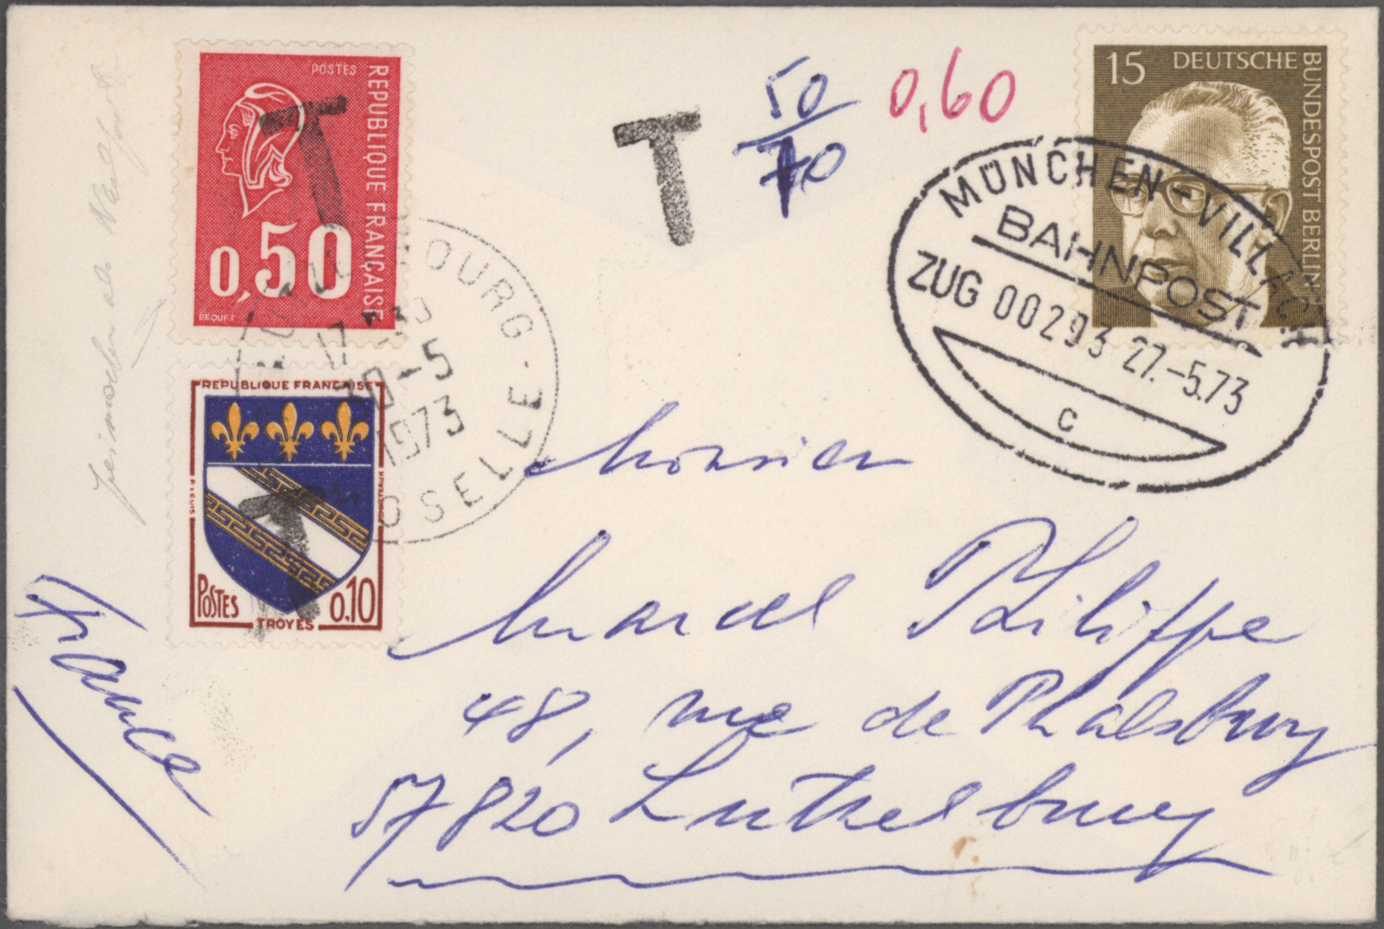 POSTES
REPUBLIQUE FRANÇAISE
0,50
BEQUET
T
T
50
70
0,60
15 DEUTSCHE BUNDESPOST BERLIN
MÜNCHEN-VILLACH
BAHNPOST
ZUG 00293 27.-5.73
c
BOURG
17-30
30-5
1973
MOSELLE
REPUBLIQUE FRANÇAISE
POSTES
0.10
TROYES
T
Monsieur
Marcel Philippe
48, rue de Phalsbourg
57820 Lutzelbourg
France